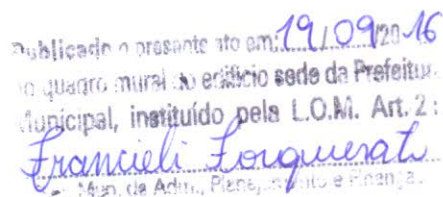 Publicado o presente ato em: 19/09/2016
no quadro mural do edifício sede da Prefeitur
Municipal, instituído pela L.O.M. Art. 2
Francieli Forquesato
Mun. de Adm., Planejamento e Finança